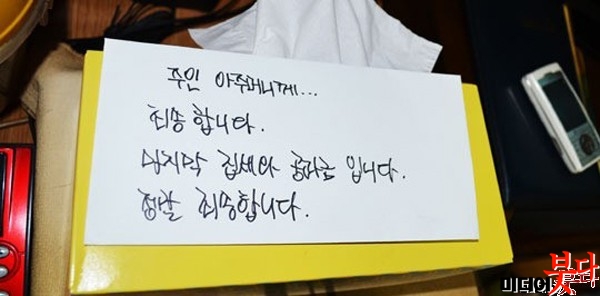 주인 아주머니께...
죄송합니다.
마지막 집세와 공과금 입니다.
정말 죄송합니다.
붓다
미디어